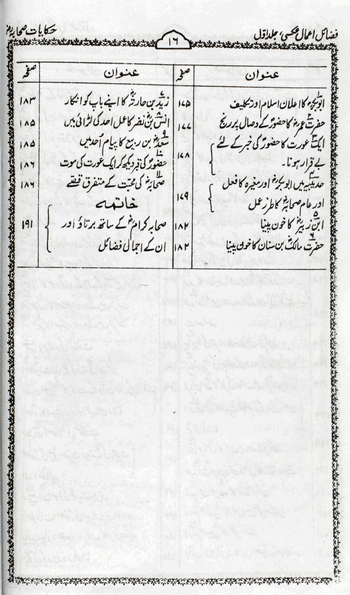 فضائل اعمال عکسی، جلد اول
۱۶
حکایات صحابہؓ
عنوان صفحہ
ابوبکرؓ کا اعلان اسلام اور تکلیف ۱۷۵
حضرت عمرؓ کا حضورؐ کے وصال پر رنج ۱۷۷
ایک عورت کا حضورؐ کی خبر کے لئے
بے قرار ہونا۔ ۱۷۸
حدیبیہ میں ابوبکرؓ اور مغیرہ کا فعل
اور عام صحابہؓ کا طرز عمل ۱۷۹
ابن زبیرؓ کا خون پینا ۱۸۲
حضرت مالکؓ بن سنان کا خون پینا ۱۸۲
عنوان صفحہ
زیدؓ بن حارثہؓ کا اپنے باپ کو انکار ۱۸۳
انسؓ بن نضر کا عمل احد کی لڑائی میں ۱۸۵
سعدؓ بن ربیع کا پیام اُحد میں ۱۸۵
حضورؐ کی قبر دیکھ کر ایک عورت کی موت ۱۸۶
صحابہؓ کی محبت کے متفرق قصے ۱۸۶
خاتمہ
صحابہ کرامؓ کے ساتھ برتاؤ اور ۱۹۱
ان کے اجمالی فضائل